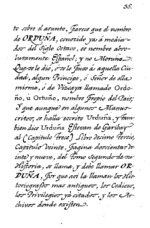 35.
to sobre el asunto, Parece que el nombre
de ORDUÑA, conocido ya à media-
dos del Siglo Octavo, es nombre abso-
lutamente Español, y no Morisco.
Que se le dió, ò se le puso à aquella Ciu-
dad, algun Principe, ò Señor de ella
misma, ò de Vizcaya llamado Ordo-
ño, ù Ortuño, nombre propio del Pais;
Y que aunque en algunos Manus-
critos, se halla escrito Urduña, y tam-
bien dice Urduña Estevan de Garibay
al (Capitulo Tercº) Libro decimo Tercio,
Capitulo Veinte, pagina doscientas se-
senta y nueve, del Tomo Segundo de su
Historia, se llama, y debe llamarse OR-
DUÑA, Por que asi la llaman los His-
toriografos mas antiguos, los Codices,
los Privilegios ya citados, y los Ar-
chivos donde existen.